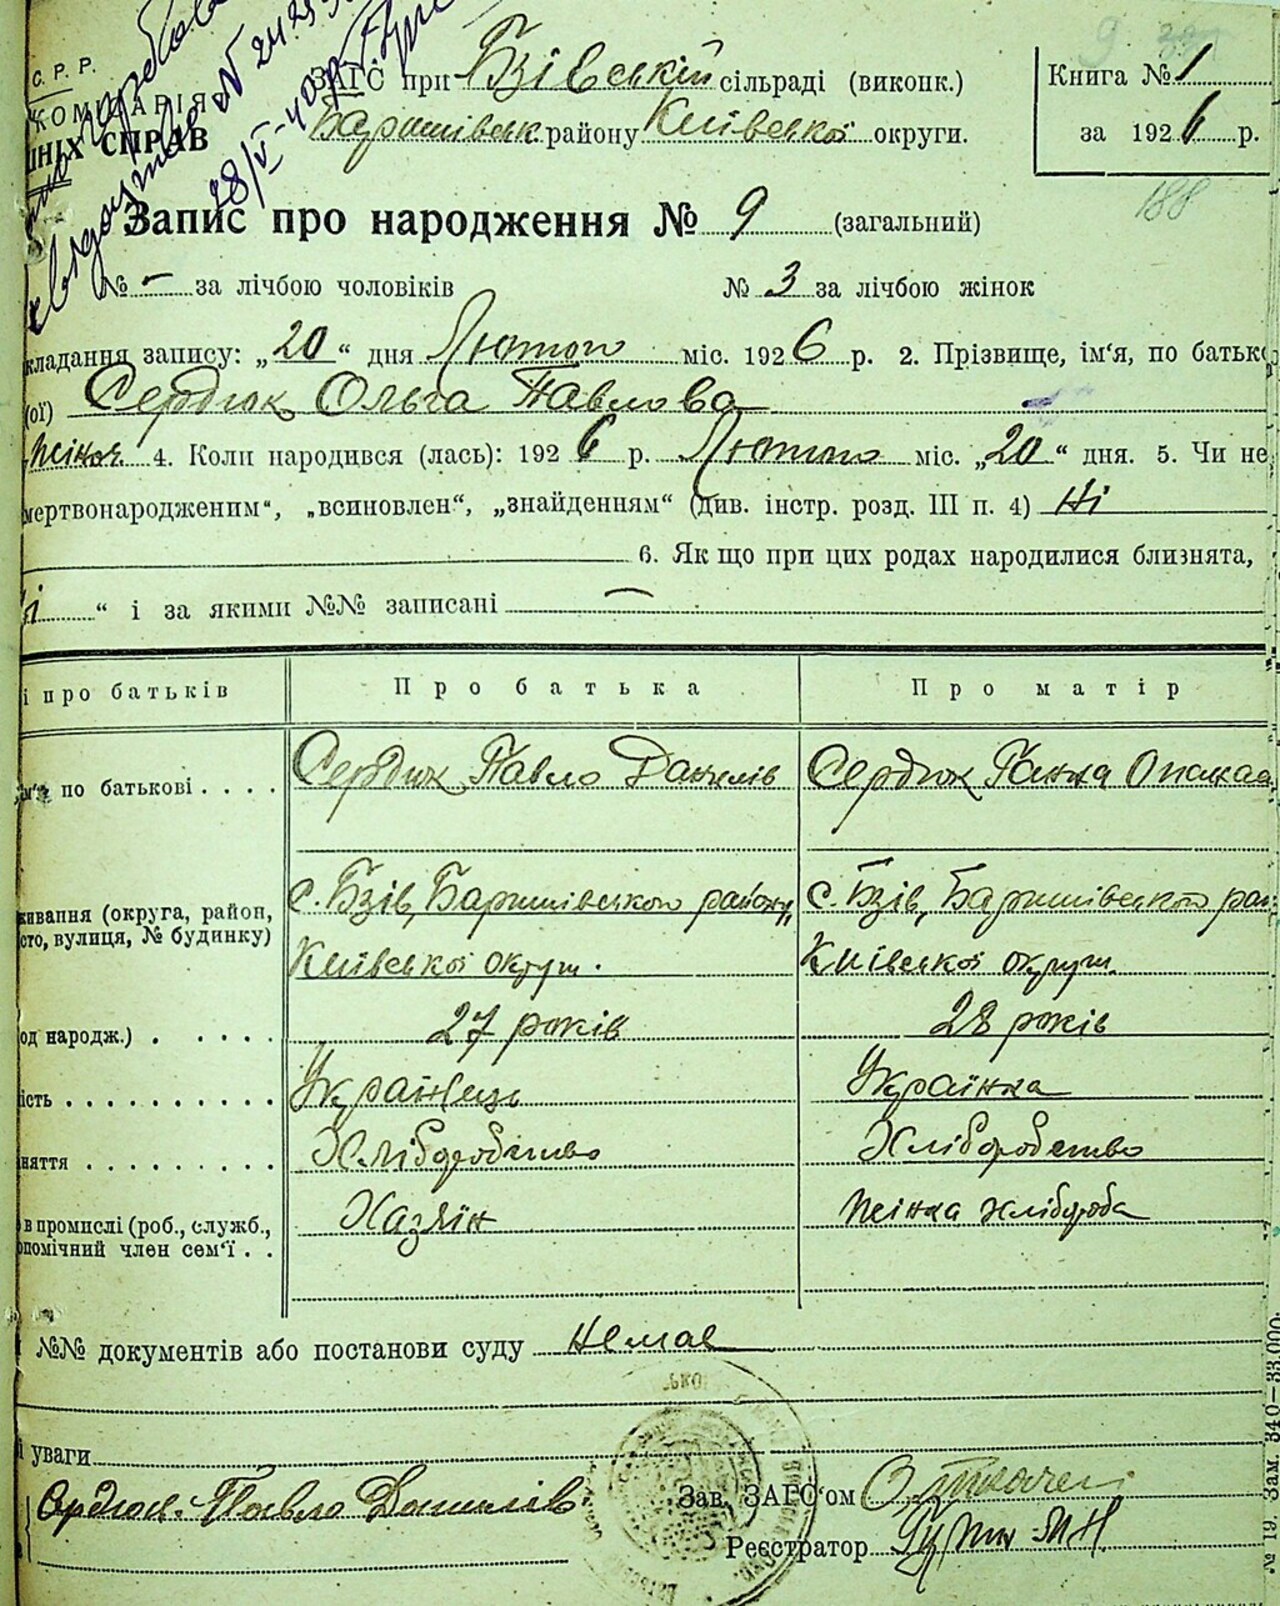 С. Р. Р.
КОМІСАРІЯ
ШНІХ СПРАВ
28/VI-40р.
ЗАГС при Бзівській сільраді (виконк.)
Баришівськ району Київської округи.
Книга № 1
за 1926 р.
188
Запис про народження № 9 (загальний)
№ - за лічбою чоловіків № 3 за лічбою жінок
кладання запису: „20“ дня Лютого міс. 1926 р. 2. Прізвище, ім‘я, по батьк
(ої) Сердюк Ольга Павлова
жіноч. 4. Коли народився (лась): 1926 р. Лютого міс. „20“ дня. 5. Чи не
мертвонародженим“, „всиновлен“, „знайденням“ (див. інстр. розд. III п. 4) Ні
6. Як що при цих родах народилися близнята,
“ і за якими №№ записані —
і про батьків Про батька Про матір
ім‘я по батькові . . . . Сердюк Павло Данилів Сердюк Ганна Опанас
живання (округа, район, с. Бзів, Баришівського району, с. Бзів, Баришівського рай
сто, вулиця, № будинку) Київської округи. Київської округи.
од народж.) . . . . . 27 років 28 років
ість . . . . . . . . . . Українець Українка
няття . . . . . . . . . Хліборобство Хліборобство
в промислі (роб., служб., Хазяїн жінка хлібороба
помічний член сем‘ї . .
№№ документів або постанови суду Немає
і уваги
Сердюк Павло Данилів
Зав. ЗАГС‘ом
Реєстратор
№ 19. Зам. 340—33.000.